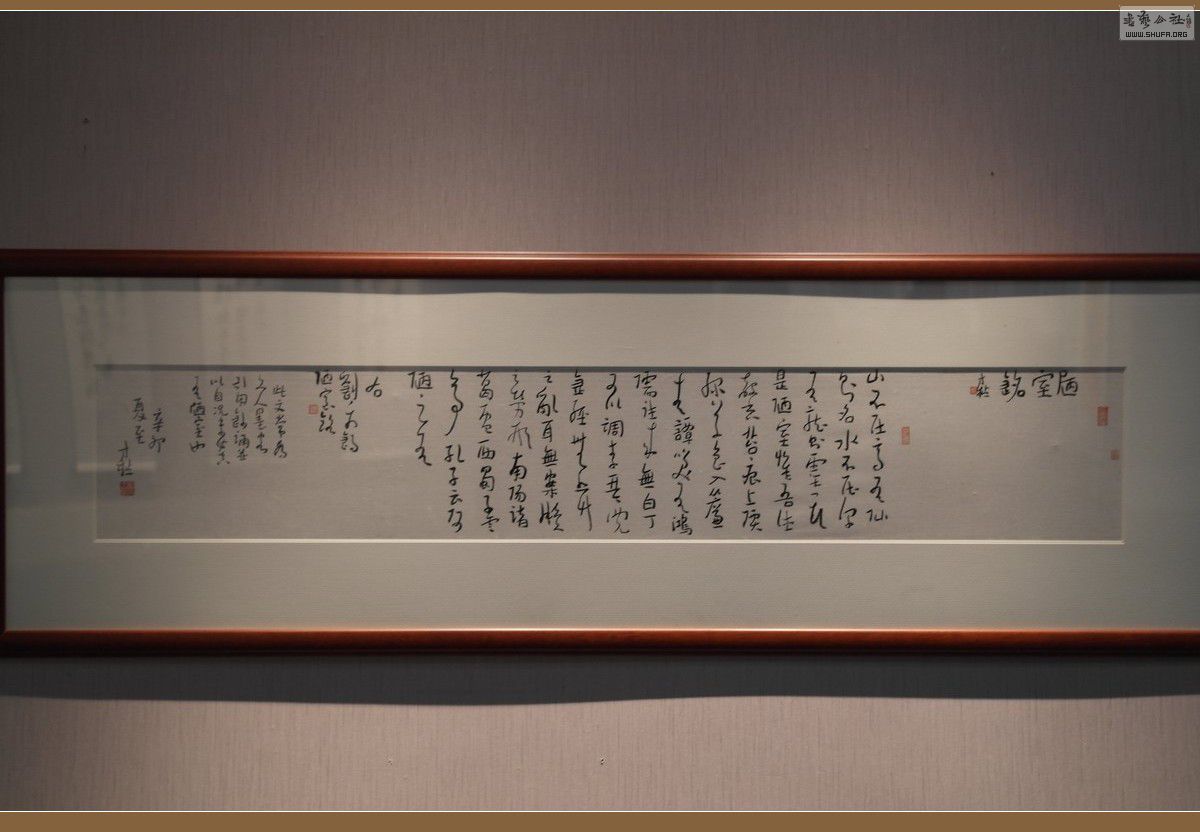 陋室銘
山不在高有仙
則名水不在深
有龍則靈斯
是陋室惟吾德
馨苔痕上階
綠草色入簾
青譚笑有鴻
儒往來無白丁
可以調素琴閱
金經無絲竹
之亂耳無案牘
之勞形南陽諸
葛廬西蜀子雲
亭孔子云何
陋之有
右
劉禹錫
陋室銘
此文常為
文人墨客
引用
以自況
有陋室
辛卯
夏至
书艺公社
WWW.SHUFA.ORG